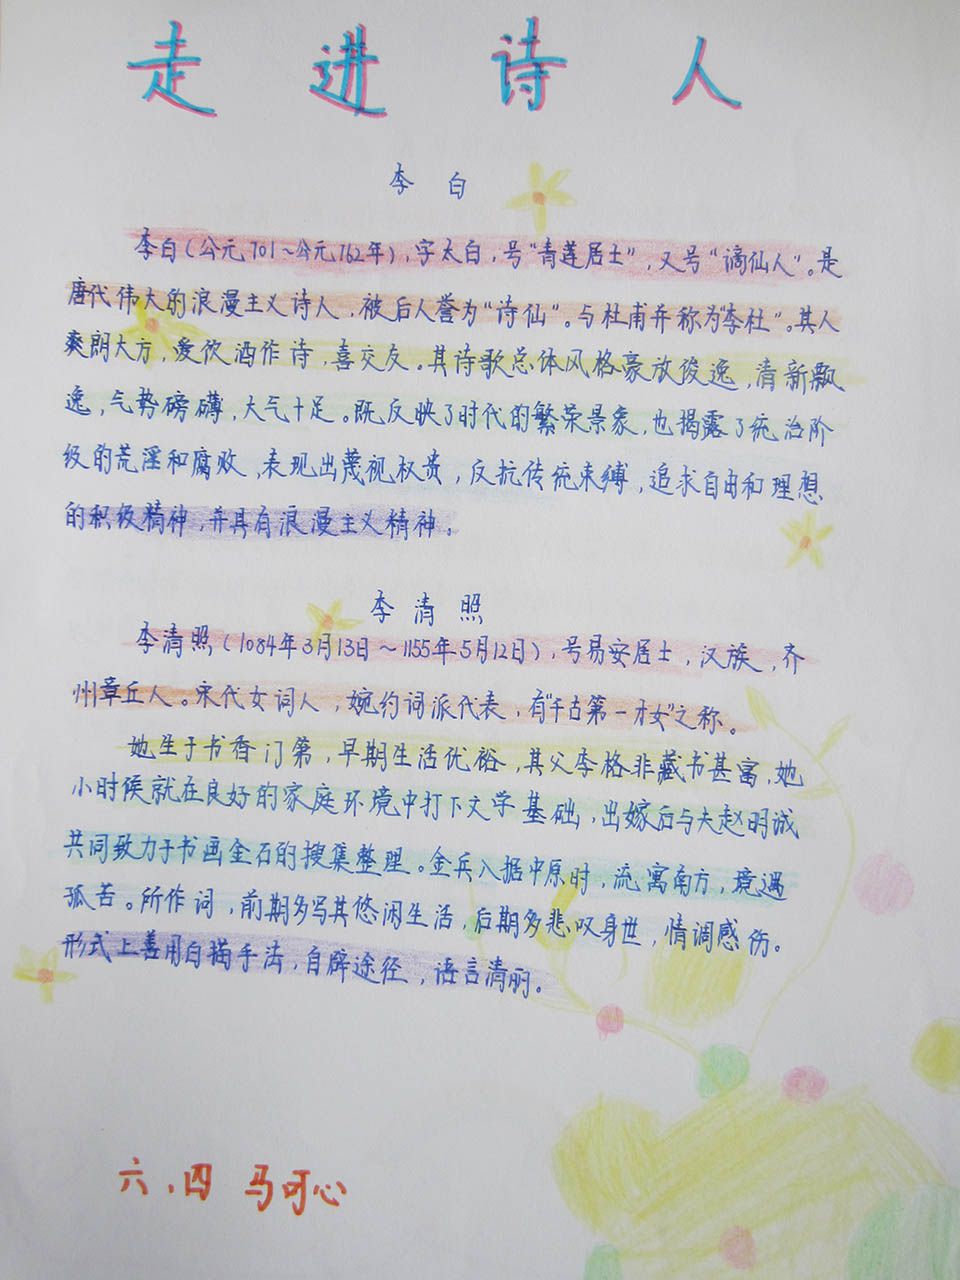 走进诗人
李白
李白(公元701~公元762年),字太白,号“青莲居士”,又号“谪仙人”。是
唐代伟大的浪漫主义诗人,被后人誉为“诗仙”。与杜甫并称为“李杜”。其人
爽朗大方,爱饮酒作诗,喜交友。其诗歌总体风格豪放俊逸,清新飘
逸,气势磅礴,大气十足。既反映了时代的繁荣景象,也揭露了统治阶
级的荒淫和腐败,表现出蔑视权贵,反抗传统束缚,追求自由和理想
的积极精神,并具有浪漫主义精神。
李清照
李清照(1084年3月13日~1155年5月12日),号易安居士,汉族,齐
州章丘人。宋代女词人,婉约词派代表,有“千古第一才女”之称。
她生于书香门第,早期生活优裕,其父李格非藏书甚富,她
小时候就在良好的家庭环境中打下文学基础,出嫁后与夫赵明诚
共同致力于书画金石的搜集整理。金兵入据中原时,流寓南方,境遇
孤苦。所作词,前期多写其悠闲生活,后期多悲叹身世,情调感伤。
形式上善用白描手法,自辟途径,语言清丽。
六.四 马可心